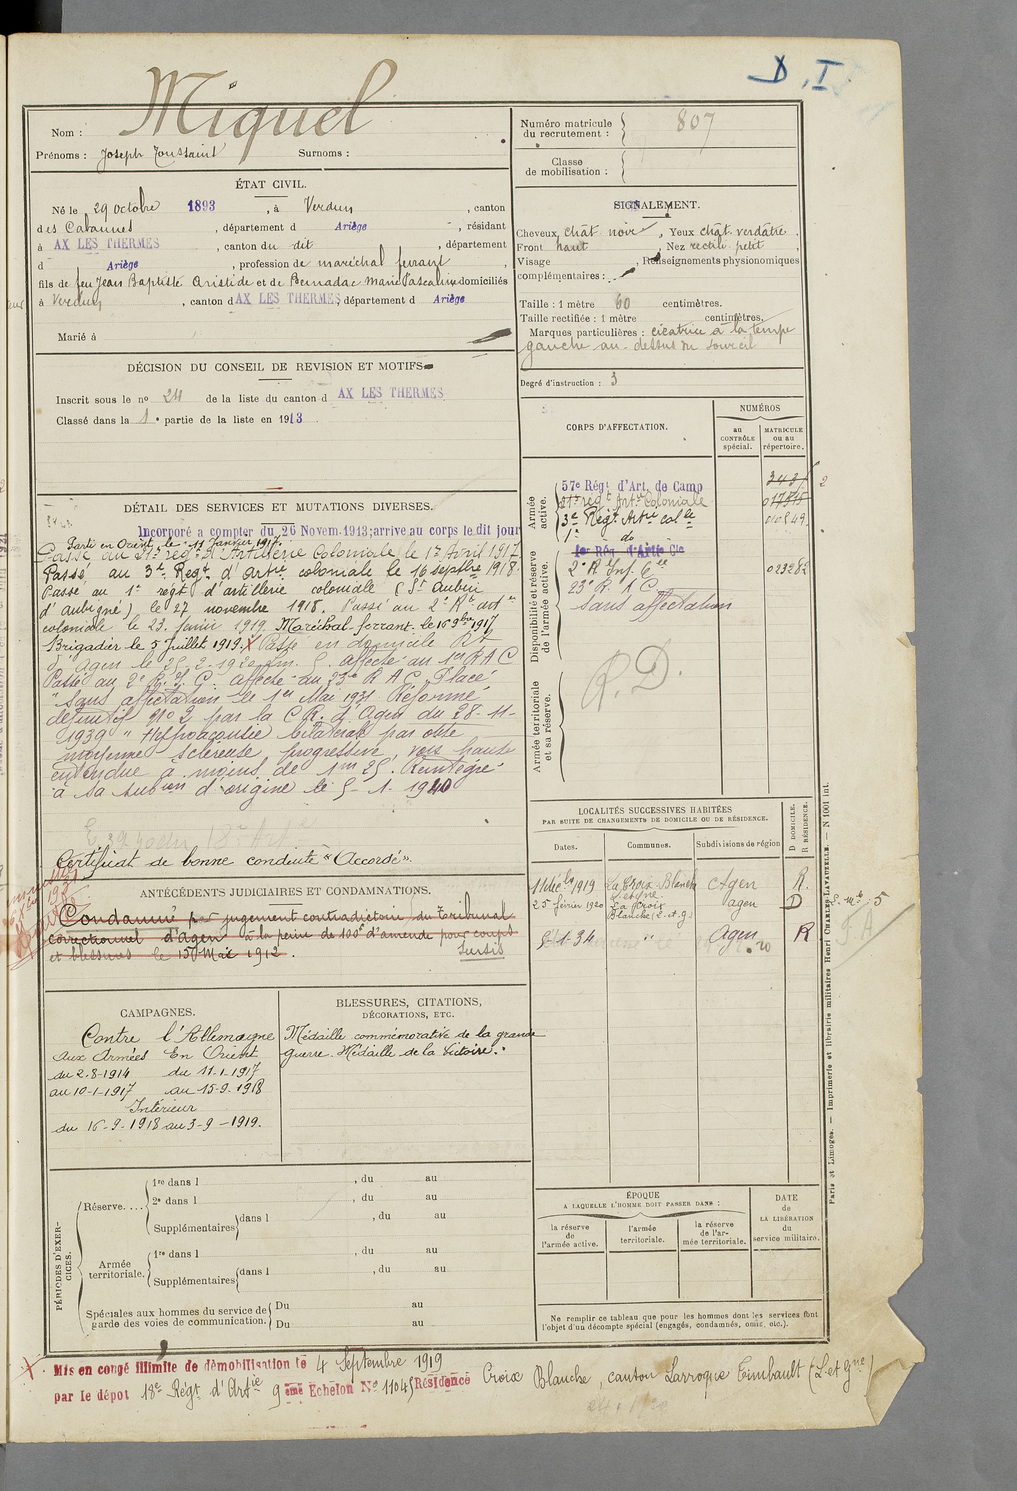 D, I
Miquel
Nom :
Prénoms : Joseph Toussaint Surnoms :
Numéro matricule du recrutement : 807
Classe de mobilisation :
ÉTAT CIVIL.
Né le 29 octobre 1893, à Verdun, canton
des Cabannes, département d Ariège, résidant
à AX LES THERMES, canton du dit, département
d Ariège, profession de maréchal ferrant,
fils de feu Jean Baptiste Aristide et de Bernadac Marie Pascaline domiciliés
à Verdun, canton d AX LES THERMES, département d Ariège
Marié à
SIGNALEMENT.
Cheveux chât noir, Yeux chât. verdâtre.
Front haut, Nez rectil. petit,
Visage , Renseignements physionomiques
complémentaires :
Taille : 1 mètre 60 centimètres.
Taille rectifiée : 1 mètre centimètres.
Marques particulières : cicatrice à la tempe
gauche au-dessus du sourcil
Degré d'instruction : 3
DÉCISION DU CONSEIL DE REVISION ET MOTIFS
Inscrit sous le no 24 de la liste du canton d AX LES THERMES
Classé dans la 1e partie de la liste en 1913.
CORPS D'AFFECTATION.
NUMÉROS
au CONTRÔLE spécial.
MATRICULE ou au répertoire.
Armée active.
57e Régt d'Art. de Camp
21e régt Art. Coloniale
3e Régt Artie colle
1er do
Disponibilité et réserve de l'armée active.
1er Rég. d'Artie Cle
2e R. Inf. Cle 02382
23e R A C
Sans affectation
Armée territoriale et sa réserve.
R. D.
DÉTAIL DES SERVICES ET MUTATIONS DIVERSES.
Incorporé a compter du 26 Novem. 1913; arrive au corps le dit jour
Parti en Orient le 11 Janvier 1917.
Passé au 21e rég. d'Artillerie Coloniale le 1er Avril 1917
Passé au 3e Régt d'Artie coloniale le 16 septbre 1918.
Passé au 1er régt d'artillerie coloniale (St Aubin
d'aubigné) le 27 novembre 1918. Passé au 2e Rt art
coloniale le 23 janvier 1919. Maréchal-ferrant le 16 9bre 1917
Brigadier le 5 juillet 1919. X Passé en domicile Rt
d'Agen le 25-2-1920 affecté au 1er R A C
Passé au 2e R. I. C. affecté au 23e R A C. Placé
"Sans affectation" le 1er Mai 1931. Réformé
définitif No 2 par la C R. d'Agen du 28-11-
1939 "Hypoacousie bilatérale par otite
moyenne scléreuse progressive, voix haute
entendue à moins de 1m 25. Réintégré
à sa subon d'origine le 5-1-1940
Certificat de bonne conduite "Accordé".
ANTÉCÉDENTS JUDICIAIRES ET CONDAMNATIONS.
Condamné par jugement contradictoire du Tribunal
correctionnel d'Agen à la peine de 100f d'amende pour coups
et blessures le 15 Mai 1912. Sursis
LOCALITÉS SUCCESSIVES HABITÉES
PAR SUITE DE CHANGEMENTS DE DOMICILE OU DE RÉSIDENCE.
Dates. Communes. Subdivisions de région D DOMICILE. R RÉSIDENCE.
11 déc. 1919 La Croix Blanche Agen R.
25 février 1920 La Croix Blanche (L.et.g) Agen D
5-1-34 " Agen R
CAMPAGNES.
Contre l'Allemagne
Aux Armées En Orient
du 2-8-1914 du 11-1-1917
au 10-1-1917 au 15-9-1918
Intérieur
du 16-9-1918 au 3-9-1919.
BLESSURES, CITATIONS,
DÉCORATIONS, ETC.
Médaille commémorative de la grande
guerre. Médaille de la Victoire.
PÉRIODES D'EXERCICES.
Réserve....
1re dans l , du au
2e dans l , du au
Supplémentaires dans l , du au
Armée territoriale.
1re dans l , du au
Supplémentaires dans l , du au
Spéciales aux hommes du service de garde des voies de communication.
Du au
Du au
ÉPOQUE
A LAQUELLE L'HOMME DOIT PASSER DANS :
la réserve de l'armée active.
l'armée territoriale.
la réserve de l'armée territoriale.
DATE de LA LIBÉRATION du service militaire.
Ne remplir ce tableau que pour les hommes dont les services font
l'objet d'un décompte spécial (engagés, condamnés, omis, etc.).
Paris et Limoges. — Imprimerie et librairie militaires Henri CHARLES-LAVAUZELLE. — N 1001 int.
X Mis en congé illimité de démobilisation le 4 Septembre 1919
par le dépôt 18e Régt d'Artie 9 ème Echelon No 11045 Résidence Croix Blanche, canton Larroque Timbault (L.et Gne)